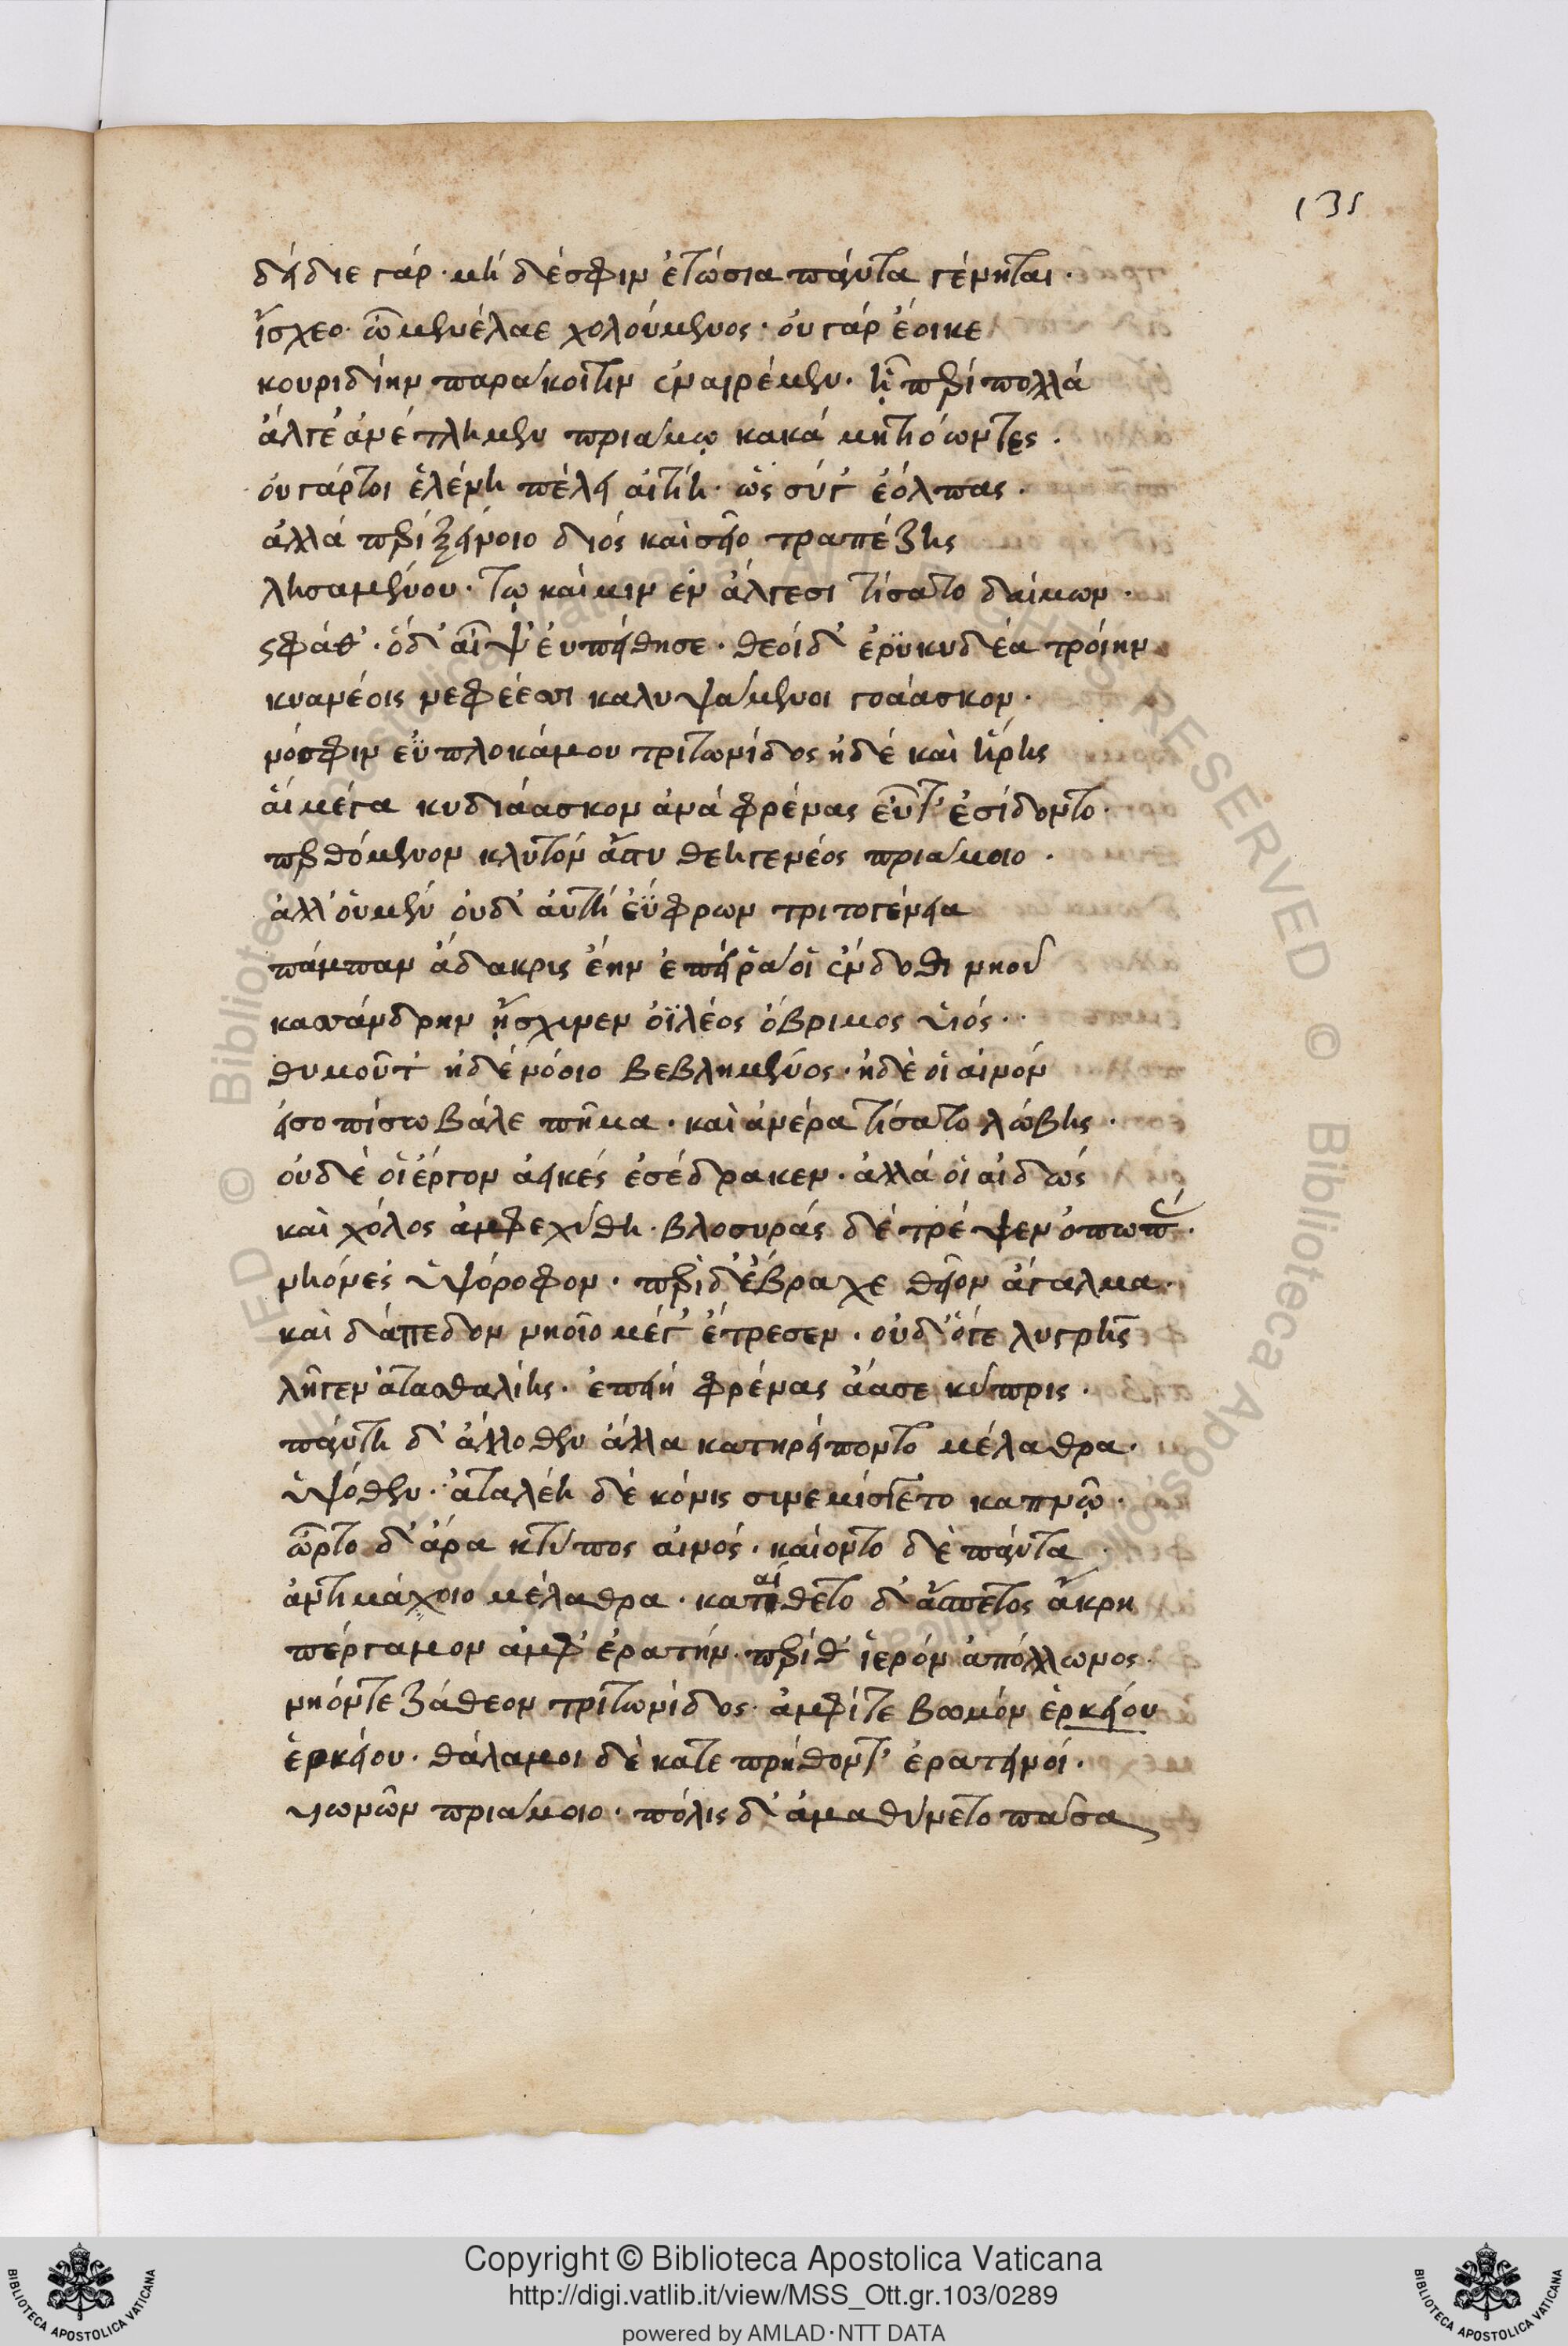 δείδιε γάρ · μή δέ σφιν ἐτώσια πάντα γένηται ·
ἴσχεο · ὦ μενέλαε χολούμενος · οὐ γάρ ἔοικε
κουριδίην παράκοιτιν ἐναιρέμεν · ᾗ περί πολλά
ἄλγε' ἀνέτλημεν πριάμῳ κακά μητιόωντες .
οὐ γάρ τοι ἑλένη πέλει αἰτίη · ὡς σύγ' ἐόλπας ·
ἀλλά περί ξείνοιο διός καὶ σεῖο τραπέζης
λησαμένου · τῷ καί μιν ἐν ἄλγεσι τίσατο δαίμων ·
ς φάθ' · ὁ δ' αἶψ' ἐυπείθησε · θεοί δ' ἐρϋκυδέα τροίην
κυανέοις νεφέεσσι καλυψάμενοι γοάασκον ·
νόσφιν ἐϋπλοκάμου τριτωνίδος ἠδέ καὶ ἥρης
αἵ μέγα κυδιάασκον ἀνά φρένας εὖτ' ἐσίδοντο ·
περθόμενον κλυτόν ἄστυ θεηγενέος πριάμοιο ·
ἀλλ' οὐ μέν οὐδ' αὐτή ἐΰφρων τριτογένεια
πάμπαν ἄδακρις ἔην ἐπεί ῥά οἱ ἔνδοθι νηοῦ
κασσάνδρην ᾔσχινεν ὀϊλέος ὄβριμος υἱός ·
θυμοῦ τ' ἠδέ νόοιο βεβλημένος · ἠδὲ οἱ αἰνόν
εἰσοπίσω βάλε πῆμα · καὶ ἀνέρα τίσατο λώβης ·
οὐδὲ οἱ ἔργον ἀεικές ἐσέδρακεν · ἀλλά οἱ αἰδώς
καὶ χόλος ἀμφεχύθη · βλοσυράς δέ τρέψεν ὀπωπάς ·
νηόν ἐς ὑψόροφον · περὶ δ' ἔβραχε θεῖον ἄγαλμα ·
καὶ δάπεδον νηοῖο μέγ' ἔτρεσεν · οὐδ' ὅγε λυγρῆς
λῆγεν ἀτασθαλίης · ἐπειή φρένας ἄασε κύπρις ·
πάντη δ' ἄλλοθεν ἄλλα κατηρείποντο μέλαθρα ·
ὑψόθεν · ἀταλέη δέ κόνις σινεμίσγετο καπνῷ ·
ὦρτο δ' ἄρα κτύπος αἰνός · καίοντο δὲ πάντα
ἀντιμάχοιο μέλαθρα · καταίθετο δ' ἄσπετος ἄκρη
πέργαμον ἀμφ' ἐρατήν · περί θ' ἱερόν ἀπόλλωνος ·
νηόν τε ζάθεον τριτωνίδος · ἀμφί τε βωμόν ἑρκείου
ἑρκείου · θάλαμοι δὲ κατεπρήθοντ' ἐρατεινοί ·
υἱωνῶν πριάμοιο · πόλις δ' ἀμαθύνετο πᾶσα